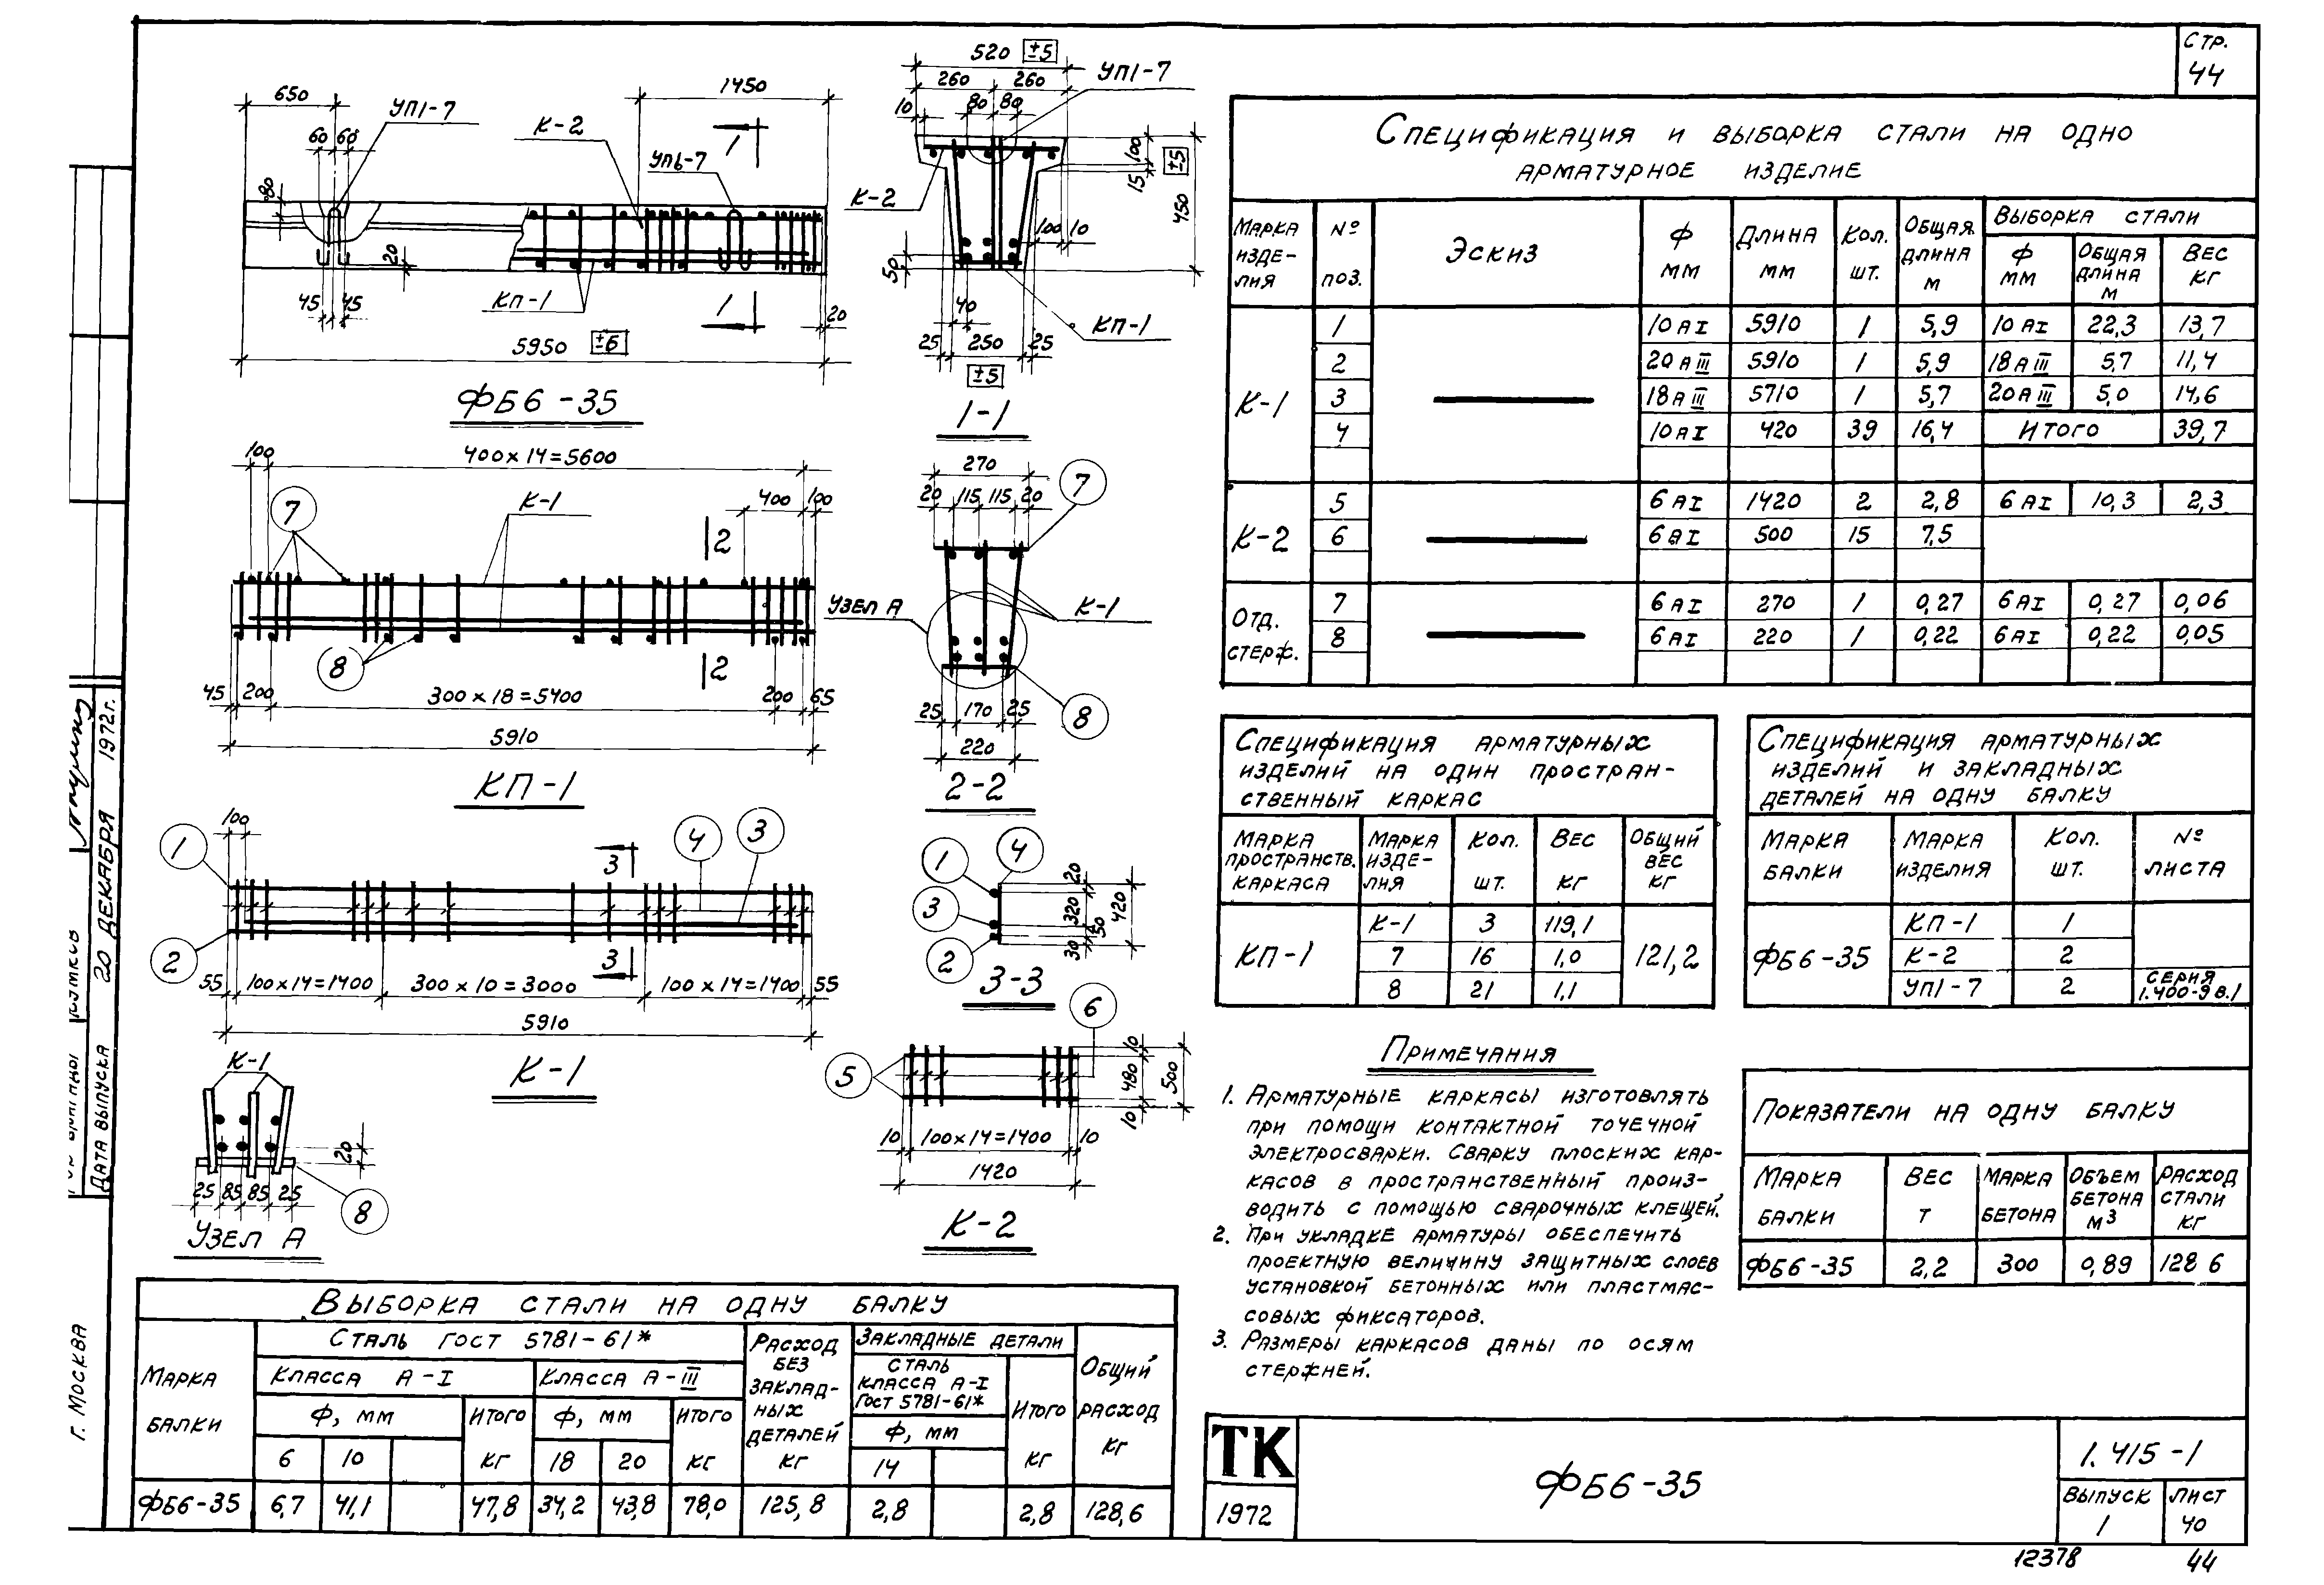 СТР.
44
650
УП1-7
60 60
80
К-2
1450
1
УП6-7
20
45 45
КП-1
1
20
5950 ±6
ФБ6-35
520 ±5
260 260
УП1-7
10 80 80
100
15
±5
450
К-2
100 10
50
40
КП-1
25 250 25
±5
1-1
100
400×14=5600
7
К-1
400 100
2
8
2
45 200 300×18=5400 200 65
5910
КП-1
270
20 115 115 20
7
УЗЕЛ А
К-1
25 170 25
8
220
2-2
100
1
4
3
3
2
3
55 100×14=1400 300×10=3000 100×14=1400 55
5910
К-1
1
4
3
2
20
320
50
30
420
3-3
К-1
20
25 85 85 25
8
УЗЕЛ А
5
6
10
480
10
500
10 100×14=1400 10
1420
К-2
СПЕЦИФИКАЦИЯ И ВЫБОРКА СТАЛИ НА ОДНО
АРМАТУРНОЕ ИЗДЕЛИЕ
МАРКА ИЗДЕ-ЛИЯ №ПОЗ. ЭСКИЗ Ф ММ ДЛИНА ММ КОЛ. ШТ. ОБЩАЯ ДЛИНА М ВЫБОРКА СТАЛИ
Ф ММ ОБЩАЯ ДЛИНА М ВЕС КГ
К-1
1 10 АI 5910 1 5,9 10 АI 22,3 13,7
2 20 АIII 5910 1 5,9 18 АIII 5,7 11,4
3 18 АIII 5710 1 5,7 20 АIII 5,0 14,6
4 10 АI 420 39 16,4 ИТОГО 39,7
К-2
5 6 АI 1420 2 2,8 6 АI 10,3 2,3
6 6 АI 500 15 7,5
ОТД. СТЕРЖ.
7 6 АI 270 1 0,27 6 АI 0,27 0,06
8 6 АI 220 1 0,22 6 АI 0,22 0,05
СПЕЦИФИКАЦИЯ АРМАТУРНЫХ
ИЗДЕЛИЙ НА ОДИН ПРОСТРАН-
СТВЕННЫЙ КАРКАС
МАРКА ПРОСТРАНСТВ. КАРКАСА МАРКА ИЗДЕ-ЛИЯ КОЛ. ШТ. ВЕС КГ ОБЩИЙ ВЕС КГ
КП-1
К-1 3 119,1
7 16 1,0 121,2
8 21 1,1
СПЕЦИФИКАЦИЯ АРМАТУРНЫХ
ИЗДЕЛИЙ И ЗАКЛАДНЫХ
ДЕТАЛЕЙ НА ОДНУ БАЛКУ
МАРКА БАЛКИ МАРКА ИЗДЕЛИЯ КОЛ. ШТ. № ЛИСТА
ФБ6-35
КП-1 1
К-2 2
УП1-7 2 СЕРИЯ 1.400-9 В.1
ПРИМЕЧАНИЯ
1. АРМАТУРНЫЕ КАРКАСЫ ИЗГОТОВЛЯТЬ
ПРИ ПОМОЩИ КОНТАКТНОЙ ТОЧЕЧНОЙ
ЭЛЕКТРОСВАРКИ. СВАРКУ ПЛОСКИХ КАР-
КАСОВ В ПРОСТРАНСТВЕННЫЙ ПРОИЗ-
ВОДИТЬ С ПОМОЩЬЮ СВАРОЧНЫХ КЛЕЩЕЙ.
2. ПРИ УКЛАДКЕ АРМАТУРЫ ОБЕСПЕЧИТЬ
ПРОЕКТНУЮ ВЕЛИЧИНУ ЗАЩИТНЫХ СЛОЕВ
УСТАНОВКОЙ БЕТОННЫХ ИЛИ ПЛАСТМАС-
СОВЫХ ФИКСАТОРОВ.
3. РАЗМЕРЫ КАРКАСОВ ДАНЫ ПО ОСЯМ
СТЕРЖНЕЙ.
ПОКАЗАТЕЛИ НА ОДНУ БАЛКУ
МАРКА БАЛКИ ВЕС Т МАРКА БЕТОНА ОБЪЕМ БЕТОНА М3 РАСХОД СТАЛИ КГ
ФБ6-35 2,2 300 0,89 128 6
ВЫБОРКА СТАЛИ НА ОДНУ БАЛКУ
МАРКА БАЛКИ СТАЛЬ ГОСТ 5781-61* РАСХОД БЕЗ ЗАКЛАД-НЫХ ДЕТАЛЕЙ КГ ЗАКЛАДНЫЕ ДЕТАЛИ ОБЩИЙ РАСХОД КГ
КЛАССА А-I КЛАССА А-III СТАЛЬ КЛАССА А-I ГОСТ 5781-61* ИТОГО КГ
Ф, ММ ИТОГО КГ Ф, ММ ИТОГО КГ Ф, ММ
6 10 18 20 14
ФБ6-35 6,7 41,1 47,8 34,2 43,8 78,0 125,8 2,8 2,8 128,6
ТК
1972
ФБ6-35
1.415-1
ВЫПУСК 1
ЛИСТ 40
12378 44
ДАТА ВЫПУСКА 20 ДЕКАБРЯ 1972г.
Г. МОСКВА